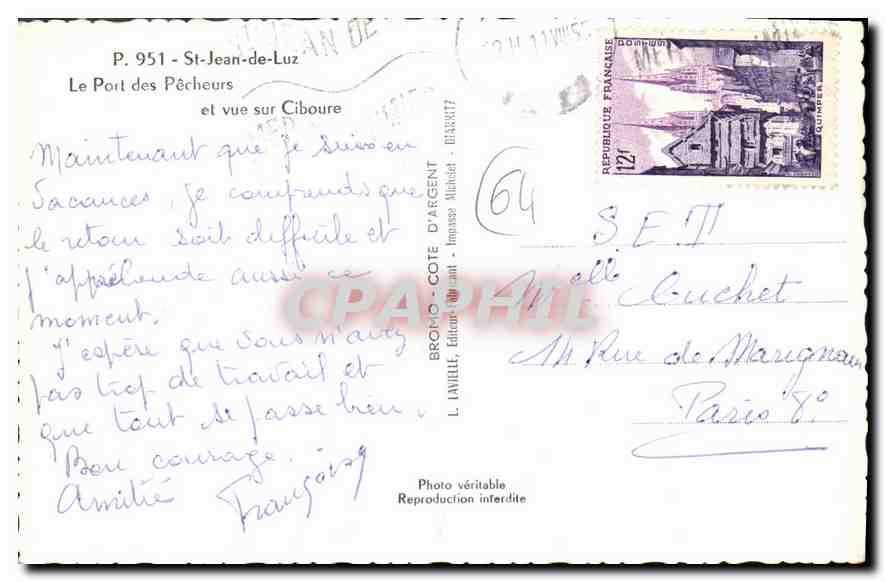 P. 951 - St-Jean-de-Luz
Le Port des Pêcheurs
et vue sur Ciboure
Maintenant que je suis en
vacances, je comprends que
le retour soit difficile et
j'appréhende aussi ce
moment.
J'espère que vous n'avez
pas trop de travail et
que tout se passe bien.
Bon courage.
Amitié Françoise
BROMO - COTE D'ARGENT
L. LAVIELLE, Editeur-Fabricant - Impasse Michelet - BIARRITZ
Photo véritable
Reproduction interdite
64
REPUBLIQUE FRANÇAISE
POSTES
12f
QUIMPER
S.E.T
Melle Cuchet
14 Rue de Marignan
Paris 8°
CPAPHIL